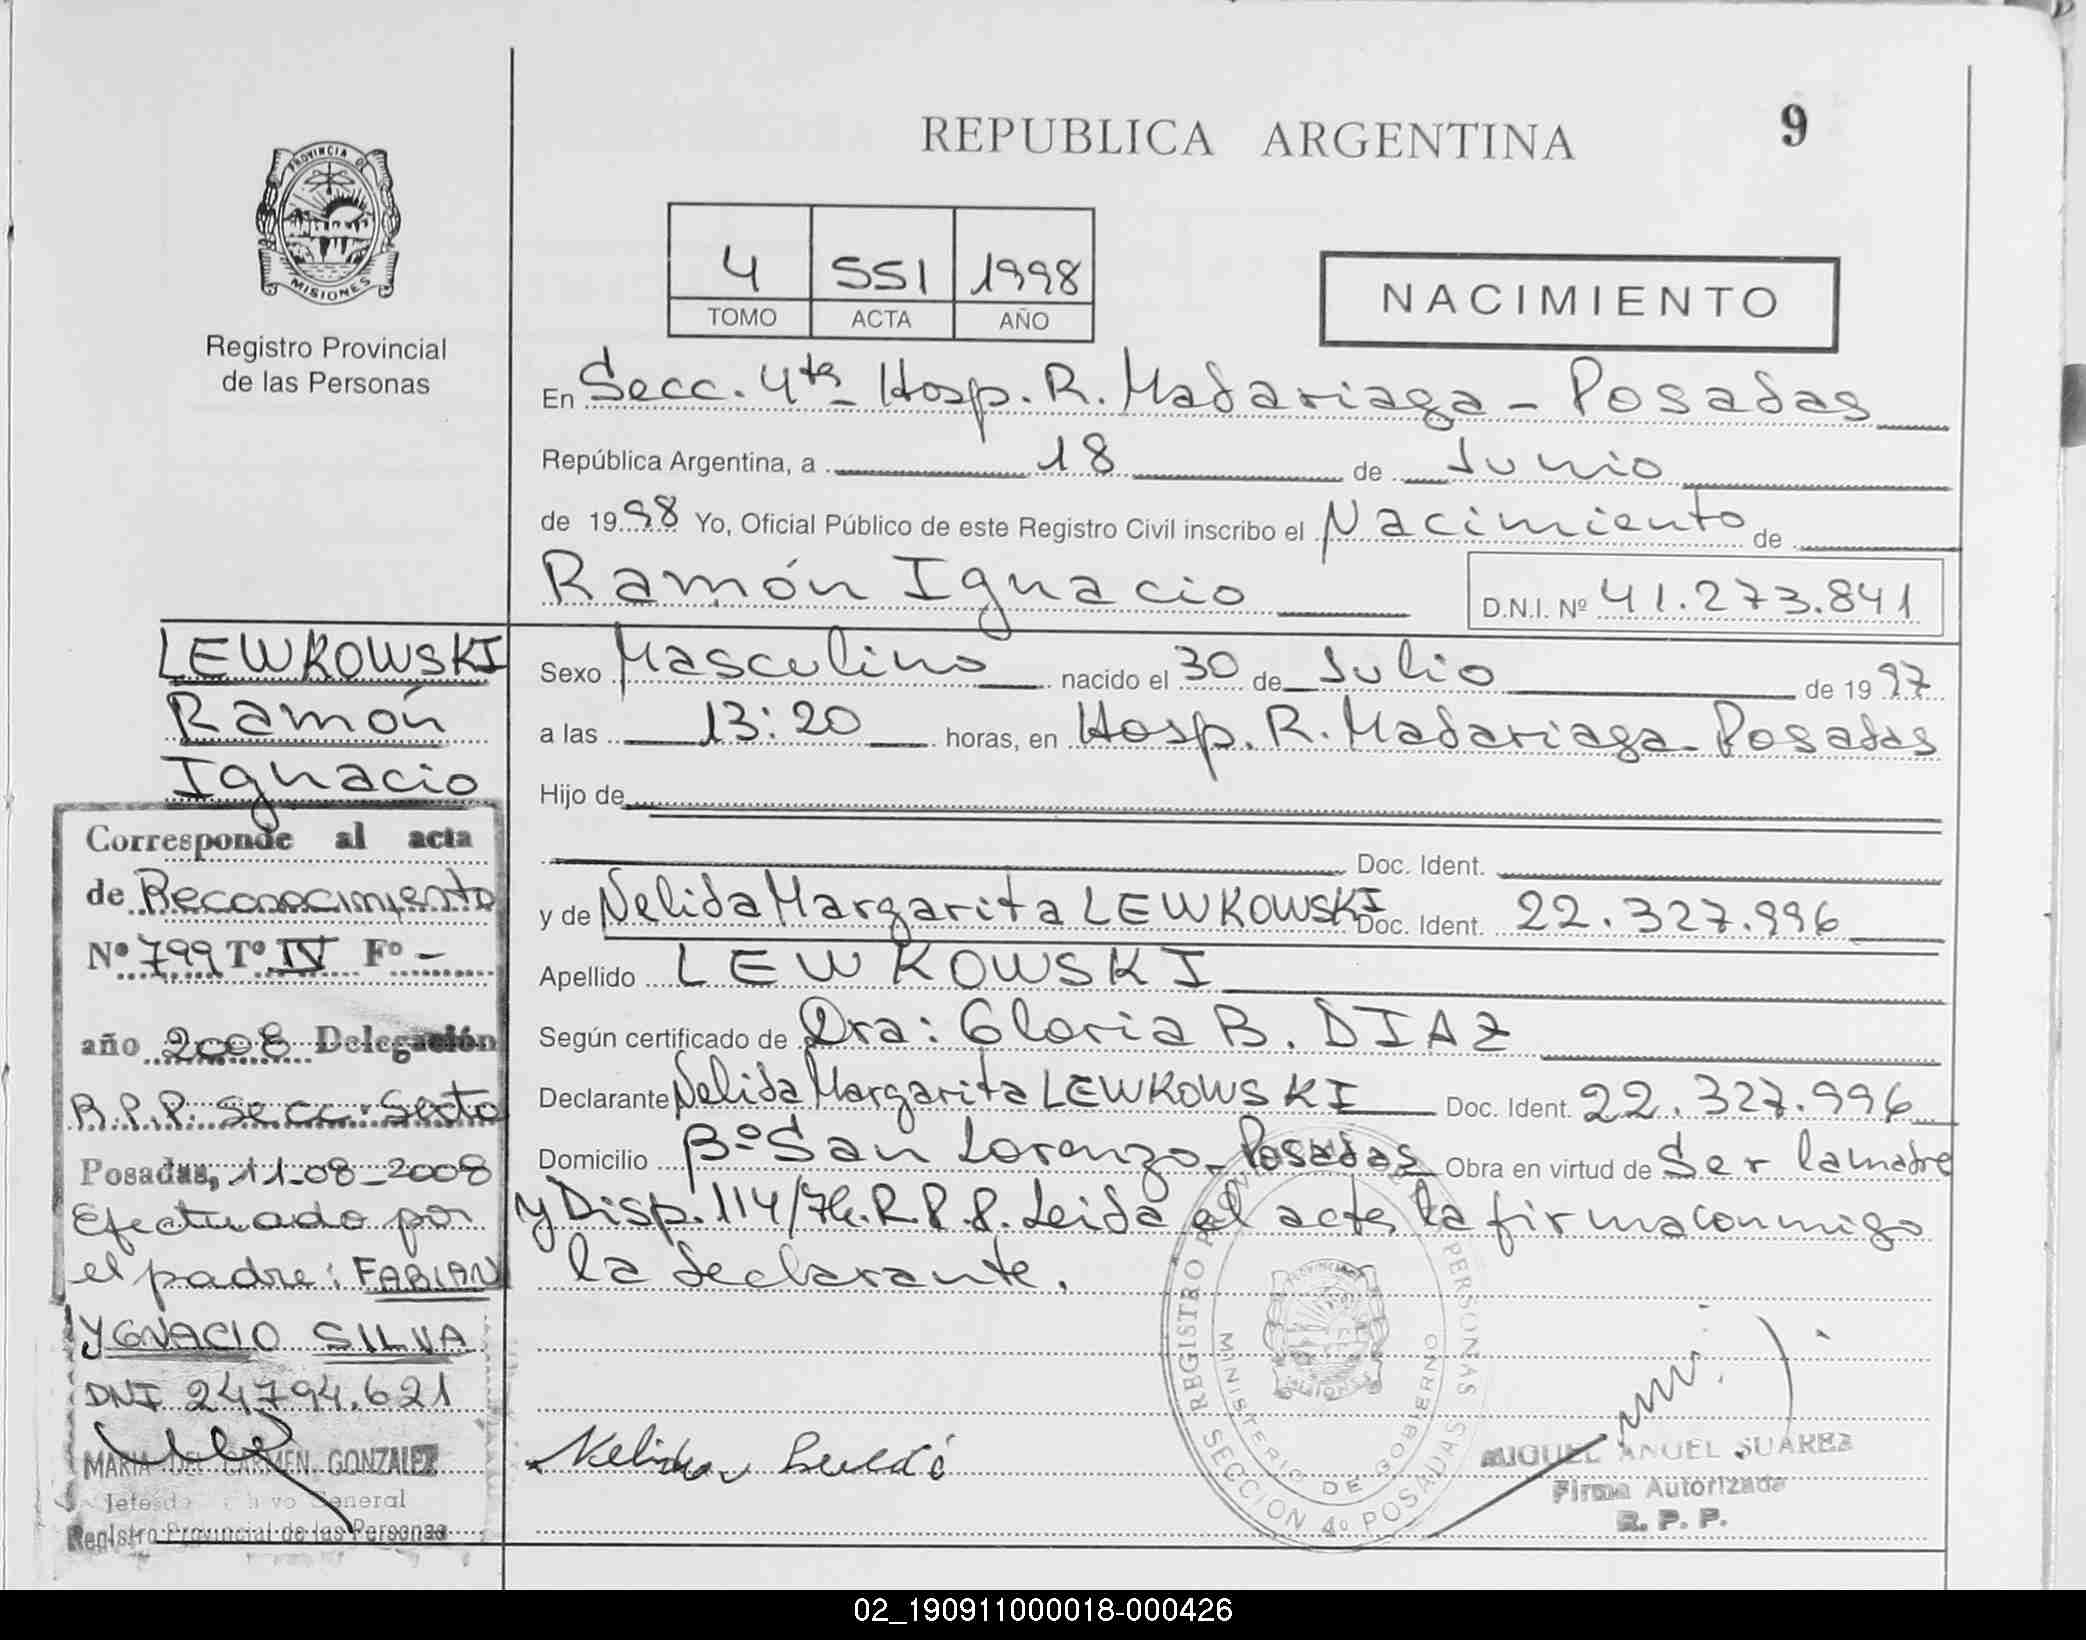 REPUBLICA ARGENTINA
9
PROVINCIA DE
MISIONES
Registro Provincial
de las Personas
4 551 1998
TOMO ACTA AÑO
NACIMIENTO
En Secc. 4ta Hosp. R. Madariaga - Posadas
República Argentina, a 18 de Junio
de 1998 Yo, Oficial Público de este Registro Civil inscribo el Nacimiento de
Ramón Ignacio D.N.I. Nº 41.273.841
Sexo Masculino nacido el 30 de Julio de 1997
a las 13:20 horas, en Hosp. R. Madariaga - Posadas
Hijo de
Doc. Ident.
y de Nelida Margarita LEWKOWSKI Doc. Ident. 22.327.996
Apellido LEWKOWSKI
Según certificado de Dra: Gloria B. DIAZ
Declarante Nelida Margarita LEWKOWSKI Doc. Ident. 22.327.996
Domicilio Bº San Lorenzo - Posadas Obra en virtud de Ser la madre
y Disp. 114/76. R.P.P. Leida el acta la firma conmigo
la declarante.
LEWKOWSKI
Ramón
Ignacio
Corresponde al acta
de Reconocimiento
Nº 799 Tº IV Fº -
año 2008 Delegación
R.P.P. Secc. Sexta
Posadas, 11-08-2008
Efectuado por
el padre: FABIAN
YGNACIO SILVA
DNI 24794.621
MARIA DEL CARMEN GONZALEZ
General
Registro Provincial de las Personas
Nelida
REGISTRO PROVINCIAL DE LAS PERSONAS
MINISTERIO DE GOBIERNO
SECCION 4º POSADAS
MISIONES
MIGUEL ANGEL SUAREZ
Firma Autorizada
R. P. P.
02_190911000018-000426